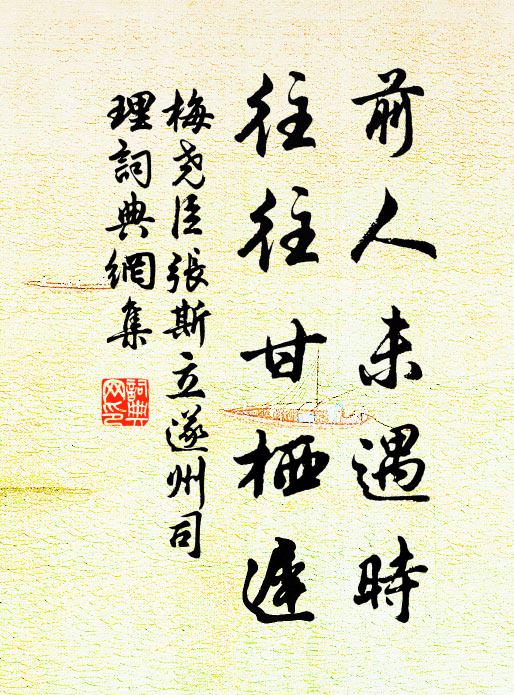 前人未遇時
往往甘栖遲
梅堯臣張斯立遂州司
理詞典網集
詞典
网印